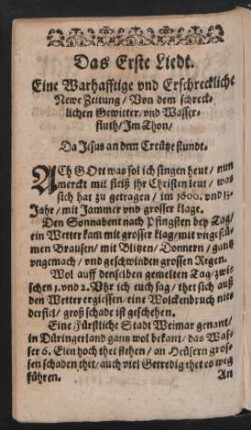 Das Erste Liedt.
Eine Warhafftige vnd Erschreckliche
Newe Zeitung / Von dem schreck-
lichen Gewitter, vnd Wasser-
fluth / Im Thon /
Da Jesus an dem Creütze stunde.
ACh GOtt was sol ich singen heut / nun
merckt mit fleiß ihr Christen leut / was
sich hat zu getragen / im 1600. vnd 13.
Jahr / mit Jammer vnd grosser klage.
Den Sonnabent nach Pfingsten bey Tag /
ein Wetter kam mit grosser klag / mit vngestü-
men Brausen / mit Blitzen / Donnern / gantz
vngemach / vnd geschwinden grossen Regen.
Wol auff denselben gemelten Tag / zwi-
schen 1. vnd 2. Vhr ich euch sag / thet sich auß
den Wetter ergiessen / eine Wolckenbruch nie-
derfiel / groß schade ist geschehen.
Eine Fürstliche Stadt Weimar genant /
in Düringerland gantz wol bekant / das Was-
ser 6. Elen hoch thet stehen / an Heüsern gros-
sen schaden thet / auch viel Getredig thet es weg
führen.
An